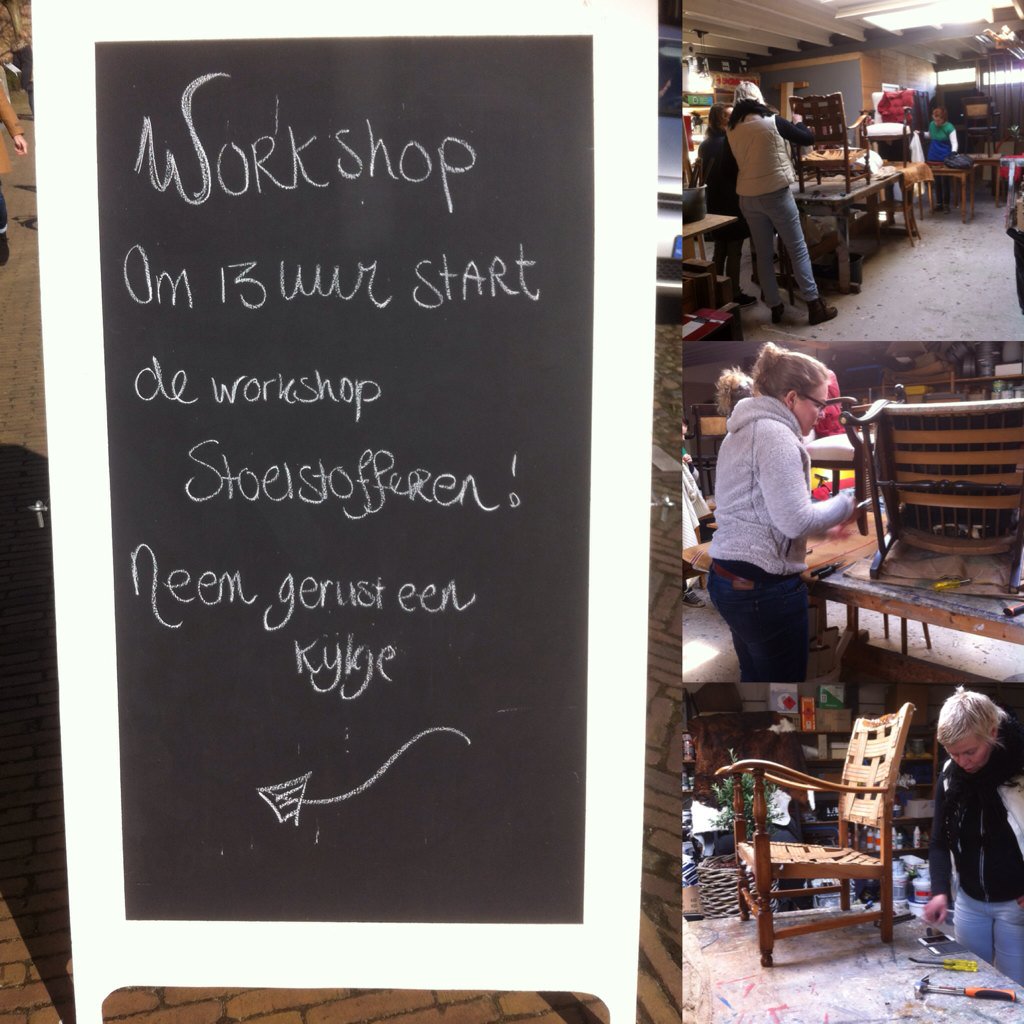 Workshop
Om 13 uur START
de workshop
Stoelstofferen!
Neem gerust een
kijkje